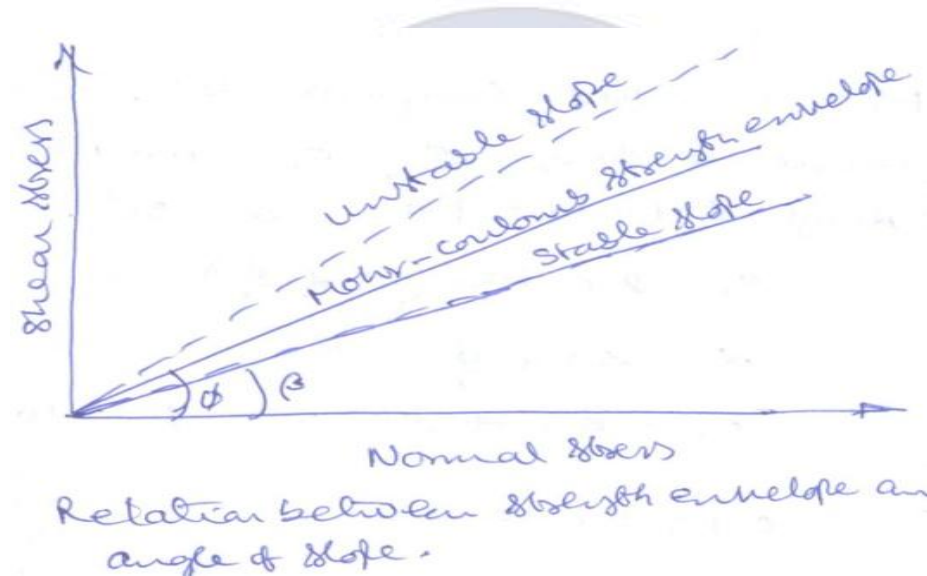 Shear stress
unstable slope
Mohr-coulomb strength envelope
Stable slope
φ β
Normal stress
Relation between strength envelope an
angle of slope.